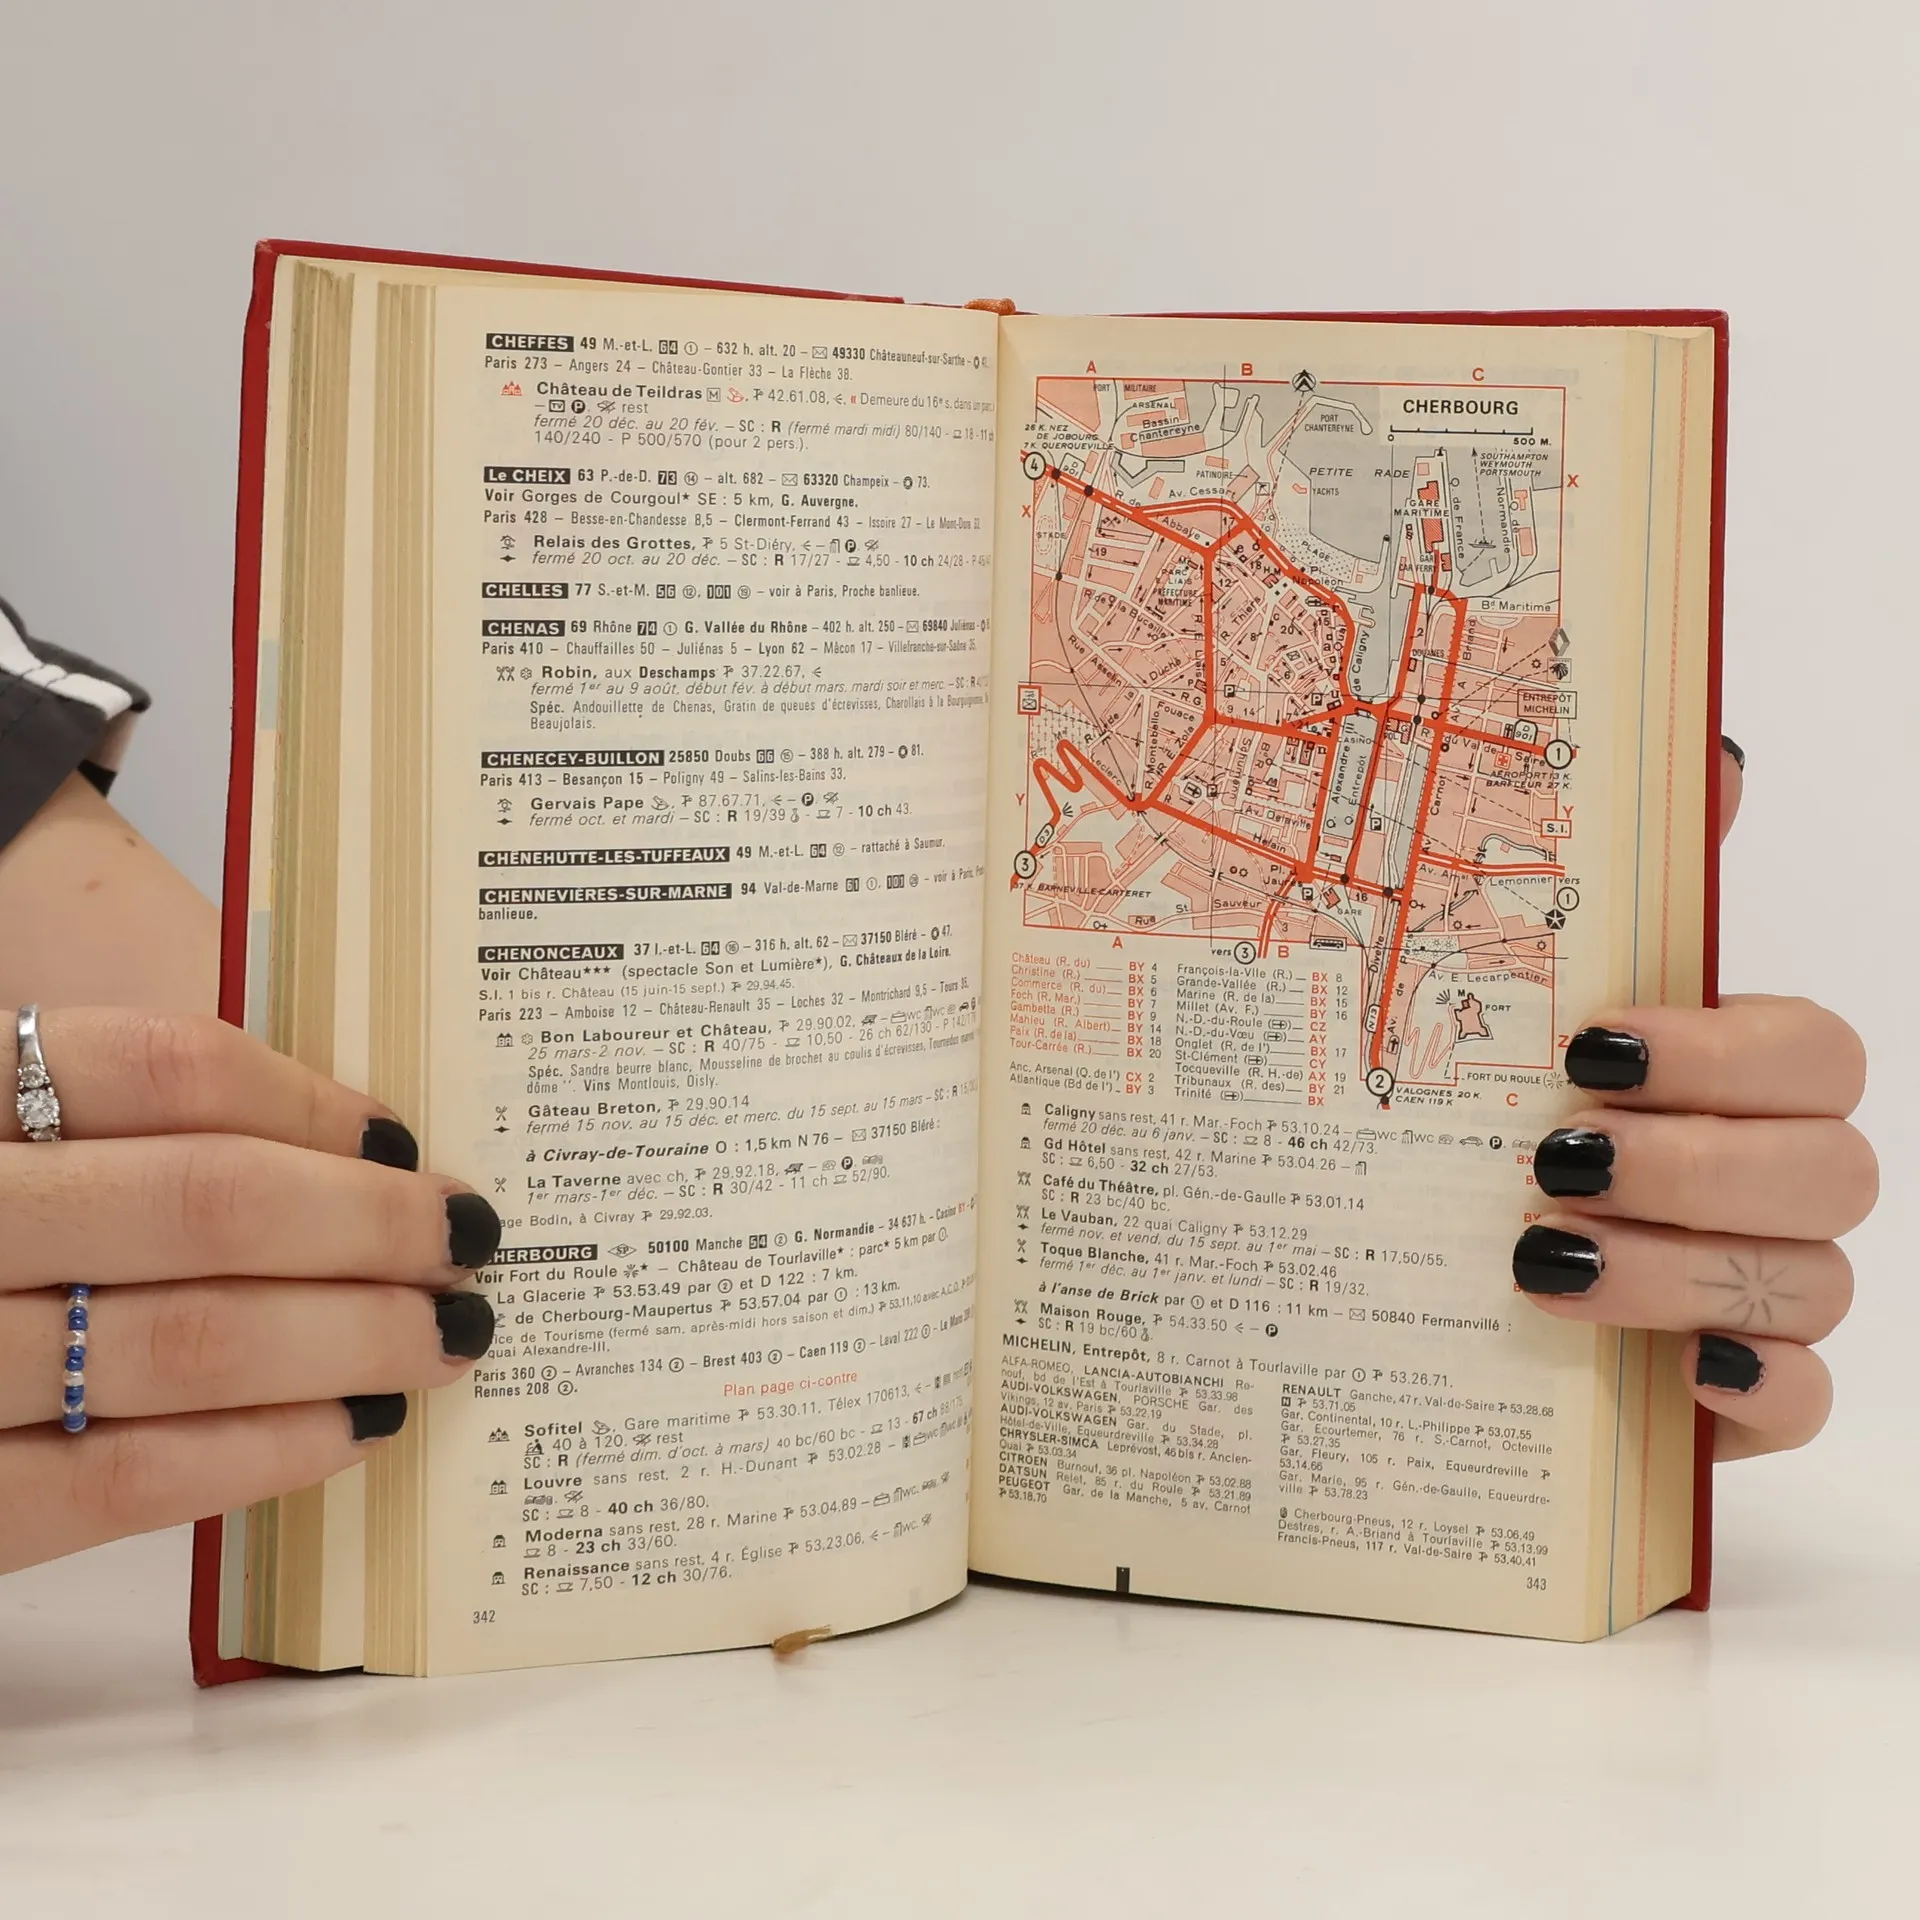 CHEFFES 49 M.-et-L. 64 ① – 632 h. alt. 20 – ✉ 49330 Châteauneuf-sur-Sarthe –
Paris 273 – Angers 24 – Château-Gontier 33 – La Flèche 38.
Château de Teildras M, 42.61.08, « Demeure du 16e s. dans un parc
– TV P. rest
fermé 20 déc. au 20 fév. – SC : R (fermé mardi midi) 80/140 - 18 - 11 ch
140/240 - P 500/570 (pour 2 pers.).
Le CHEIX 63 P.-de-D. 73 ⑭ – alt. 682 – ✉ 63320 Champeix – 73.
Voir Gorges de Courgoul* SE : 5 km, G. Auvergne.
Paris 428 – Besse-en-Chandesse 8,5 – Clermont-Ferrand 43 – Issoire 27 – Le Mont-Dore
Relais des Grottes, 5 St-Diéry, – P.
fermé 20 oct. au 20 déc. – SC : R 17/27 - 4,50 - 10 ch 24/28 - P
CHELLES 77 S.-et-M. 56 ⑫, 101 ⑲ – voir à Paris, Proche banlieue.
CHENAS 69 Rhône 74 ① G. Vallée du Rhône – 402 h. alt. 250 – ✉ 69840 Juliénas –
Paris 410 – Chauffailles 50 – Juliénas 5 – Lyon 62 – Mâcon 17 – Villefranche-sur-Saône 35.
Robin, aux Deschamps 37.22.67,
fermé 1er au 9 août, début fév. à début mars, mardi soir et merc. – SC : R
Spéc. Andouillette de Chenas, Gratin de queues d'écrevisses, Charollais à la Bourguignonne,
Beaujolais.
CHENECEY-BUILLON 25850 Doubs 66 ⑮ – 388 h. alt. 279 – 81.
Paris 413 – Besançon 15 – Poligny 49 – Salins-les-Bains 33.
Gervais Pape, 87.67.71, – P.
fermé oct. et mardi – SC : R 19/39 - 7 - 10 ch 43.
CHENEHUTTE-LES-TUFFEAUX 49 M.-et-L. 64 ⑫ – rattaché à Saumur.
CHENNEVIÈRES-SUR-MARNE 94 Val-de-Marne 61 ①, 101 – voir à Paris,
banlieue.
CHENONCEAUX 37 I.-et-L. 64 ⑯ – 316 h. alt. 62 – ✉ 37150 Bléré – 47.
Voir Château*** (spectacle Son et Lumière*), G. Châteaux de la Loire.
S.I. 1 bis r. Château (15 juin-15 sept.) 29.94.45.
Paris 223 – Amboise 12 – Château-Renault 35 – Loches 32 – Montrichard 9,5 – Tours 35.
Bon Laboureur et Château, 29.90.02, – wc wc
25 mars-2 nov. – SC : R 40/75 - 10,50 - 26 ch 62/130 - P 142/176
Spéc. Sandre beurre blanc, Mousseline de brochet au coulis d'écrevisses, Tournedos
dôme ". Vins Montlouis, Oisly.
Gâteau Breton, 29.90.14
fermé 15 nov. au 15 déc. et merc. du 15 sept. au 15 mars – SC : R
à Civray-de-Touraine O : 1,5 km N 76 – ✉ 37150 Bléré :
La Taverne avec ch, 29.92.18, – P.
1er mars-1er déc. – SC : R 30/42 - 11 ch 52/90.
age Bodin, à Civray 29.92.03.
HERBOURG SP 50100 Manche 54 ② G. Normandie – 34 637 h. – Casino BY –
Voir Fort du Roule * – Château de Tourlaville* : parc* 5 km par ①.
La Glacerie 53.53.49 par ② et D 122 : 7 km.
de Cherbourg-Maupertus 53.57.04 par ① : 13 km.
ice de Tourisme (fermé sam. après-midi hors saison et dim.) 53.11.10 avec A.C.O.
quai Alexandre-III.
Paris 360 ② – Avranches 134 ② – Brest 403 ② – Caen 119 ② – Laval 222 ② – Le Mans
Rennes 208 ②.
Plan page ci-contre
Sofitel, Gare maritime 53.30.11, Télex 170613, –
40 à 120. rest
SC : R (fermé dim. d'oct. à mars) 40 bc/60 bc - 13 - 67 ch
Louvre sans rest, 2 r. H.-Dunant 53.02.28 – wc wc
SC : 8 - 40 ch 36/80.
Moderna sans rest, 28 r. Marine 53.04.89 – wc.
8 - 23 ch 33/60.
Renaissance sans rest, 4 r. Église 53.23.06, – wc.
SC : 7,50 - 12 ch 30/76.
342
A B C
CHERBOURG
500 M.
PORT MILITAIRE
ARSENAL
Bassin
Chantereyne
PORT
CHANTEREYNE
26 K. NEZ
DE JOBOURG
7 K. QUERQUEVILLE
4
D 901
PATINOIRE
PETITE RADE
YACHTS
SOUTHAMPTON
WEYMOUTH
PORTSMOUTH
X
X
R. de l'Abbaye
Av. Cessart
GARE
MARITIME
Q. de France
Q. de Normandie
STADE
PLAGE
GARE
CAR FERRY
PARC
E. LIAIS
PRÉFECTURE
MARITIME
Pl.
Napoléon
H
Bd Maritime
R. de la Bucaille
R. Thiers
Quai de Caligny
DOUANES
Av. A. Briand
Rue Asselin
Duché
R. E. Liais
ENTREPÔT
MICHELIN
Fouace
R. Montebello
R. E. Zola
CASINO
POL.
R. du Val de Saire
D 901
1
AÉROPORT 13 K.
BARFLEUR 27 K.
Leclerc
Q. Alexandre III
Q. Entrepôt
Carnot
Y
Y
S.I.
Av. Delaville
Helain
D 3
3
37 K. BARNEVILLE-CARTERET
Pl.
Jaurès
GARE
Av. Amal Lemonnier
vers
1
Rue St. Sauveur
A
vers 3 B
Divette
Av. de Paris
Av. E. Lecarpentier
M
FORT
N 13
Z
FORT DU ROULE
2
VALOGNES 20 K.
CAEN 119 K
C
Château (R. du) BY 4
Christine (R.) BX 5
Commerce (R. du) BX 6
Foch (R. Mar.) BY 7
Gambetta (R.) BY 9
Mahieu (R. Albert) BY 14
Paix (R. de la) BX 18
Tour-Carrée (R.) BX 20
Anc. Arsenal (Q. de l') CX 2
Atlantique (Bd de l') BY 3
François-la-Vlle (R.) BX 8
Grande-Vallée (R.) BX 12
Marine (R. de la) BX 15
Millet (Av. F.) BY 16
N.-D.-du-Roule CZ
N.-D.-du-Vœu AY
Onglet (R. de l') BX 17
St-Clément CY
Tocqueville (R. H.-de) AX 19
Tribunaux (R. des) BY 21
Trinité BX
Caligny sans rest, 41 r. Mar.-Foch 53.10.24 – wc wc P.
fermé 20 déc. au 6 janv. – SC : 8 - 46 ch 42/73.
Gd Hôtel sans rest, 42 r. Marine 53.04.26 –
SC : 6,50 - 32 ch 27/53.
Café du Théâtre, pl. Gén.-de-Gaulle 53.01.14
SC : R 23 bc/40 bc.
Le Vauban, 22 quai Caligny 53.12.29
fermé nov. et vend. du 15 sept. au 1er mai – SC : R 17,50/55.
Toque Blanche, 41 r. Mar.-Foch 53.02.46
fermé 1er déc. au 1er janv. et lundi – SC : R 19/32.
à l'anse de Brick par ① et D 116 : 11 km – ✉ 50840 Fermanville :
Maison Rouge, 54.33.50 – P
SC : R 19 bc/60
MICHELIN, Entrepôt, 8 r. Carnot à Tourlaville par ① 53.26.71.
ALFA-ROMEO, LANCIA-AUTOBIANCHI Re-
nouf, bd de l'Est à Tourlaville 53.33.98
AUDI-VOLKSWAGEN, PORSCHE Gar. des
Vikings, 12 av. Paris 53.22.19
AUDI-VOLKSWAGEN Gar. du Stade, pl.
Hôtel-de-Ville, Equeurdreville 53.34.28
CHRYSLER-SIMCA Leprévost, 46 bis r. Ancien-
Quai 53.03.34
CITROEN Burnouf, 36 pl. Napoléon 53.02.88
DATSUN Relet, 85 r. du Roule 53.21.89
PEUGEOT Gar. de la Manche, 5 av. Carnot
53.18.70
RENAULT Ganche, 47 r. Val-de-Saire 53.28.68
N 53.71.05
Gar. Continental, 10 r. L.-Philippe 53.07.55
Gar. Ecourtemer, 76 r. S.-Carnot, Octeville
53.27.35
Gar. Fleury, 105 r. Paix, Equeurdreville
53.14.66
Gar. Marie, 95 r. Gén.-de-Gaulle, Equeurdre-
ville 53.78.23
Cherbourg-Pneus, 12 r. Loysel 53.06.49
Destres, r. A.-Briand à Tourlaville 53.13.99
Francis-Pneus, 117 r. Val-de-Saire 53.40.41
343